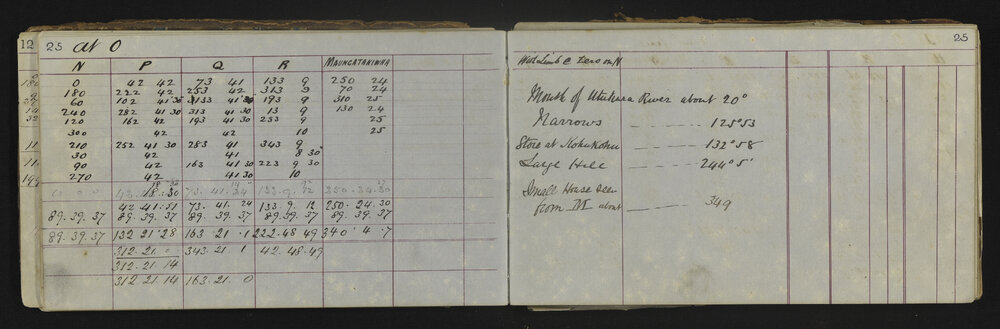 12
25 at O
N P Q R MAUNGATANIWHA
0 42 42 73 41 133 9 250 24
180 222 42 253 42 313 9 70 24
60 102 41 30 133 41 30 193 9 310 25
240 282 41 30 313 41 30 13 9 130 24
120 162 42 193 41 30 253 9 25
300 42 42 10 25
210 252 41 30 283 41 343 9
30 42 41 8 30
90 42 163 41 30 223 9 30
270 42 41 30 10
0 0 0 73. 41. 133. 9. 12 250. 24. 30
42 41. 51 73. 41. 24 133. 9. 12 250. 24. 30
89. 39. 37 89. 39. 37 89. 39. 37 89. 39. 37 89. 39. 37
89. 39. 37 132 21 28 163. 21. 1 222. 48 49 340 4. 7
312. 21. 0 343. 21. 1 42. 48. 49
312. 21. 14
312 21. 14 163. 21. 0
25
With Limb @ Zero on N
Mouth of Utukura River about 20°
Narrows 125° 53
Store at Kohukohu 132° 58
Large Hill 244° 5'
Small House seen
from M about 349